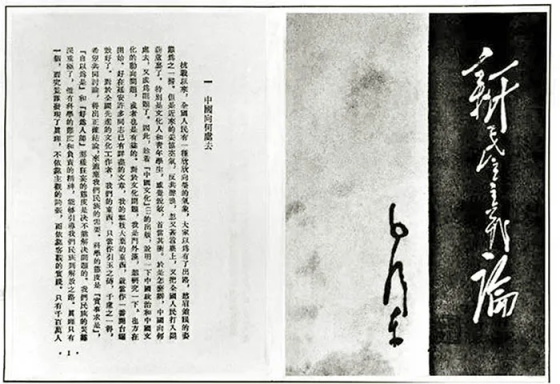 新民主主義論
毛澤东
一 中國向何處去
抗戰以來,全國人民有一種欣欣向榮的氣象,大家以爲有了出路,愁眉鎖眼的姿
態爲之一掃。但是近來的妥協空氣,反共聲浪,忽又甚囂塵上,又把全國人民打入悶
葫蘆裏了。特別是文化人和青年學生,感覺銳敏,首當其衝。於是怎麽辦,中國向何
處去,又成爲問題了。因此,趁着『中國文化』〔一〕的出版,說明一下中國政治和中國文
化的動向問題,或者也是有益的。對於文化問題,我是門外漢,想研究一下,也方在
開始。好在延安許多同志已有詳盡的文章,我的粗枝大葉的東西,就當作一番開台鑼
鼓好了。對於全國先進的文化工作者,我們的東西,只當作引玉之磚,千慮之一得,
希望共同討論,得出正確結論,來適應我們民族的需要。科學的態度是『實事求是』,
『自以爲是』和『好爲人師』那樣狂妄的態度是決不能解決問題的。我們民族的災難
深重極了,惟有科學的態度和負責的精神,能够引導我們民族到解放之路。眞理只有
一個,而究竟誰發現了眞理,不依靠主觀的誇張,而依靠客觀的實踐。只有千百萬人
·1·